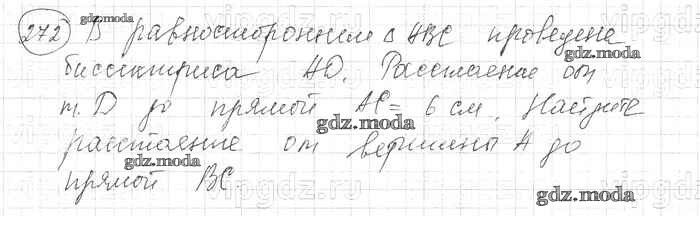 272 В равностороннем △ ABC проведена
биссектриса AD. Расстояние от
т. D до прямой AC = 6 см. Найдите
расстояние от вершины A до
прямой BC
gdz.moda
gdz.moda
gdz.moda
gdz.moda
gdz.moda
vipgdz.ru
vipgdz.ru
vipgdz.ru
vipgdz.ru